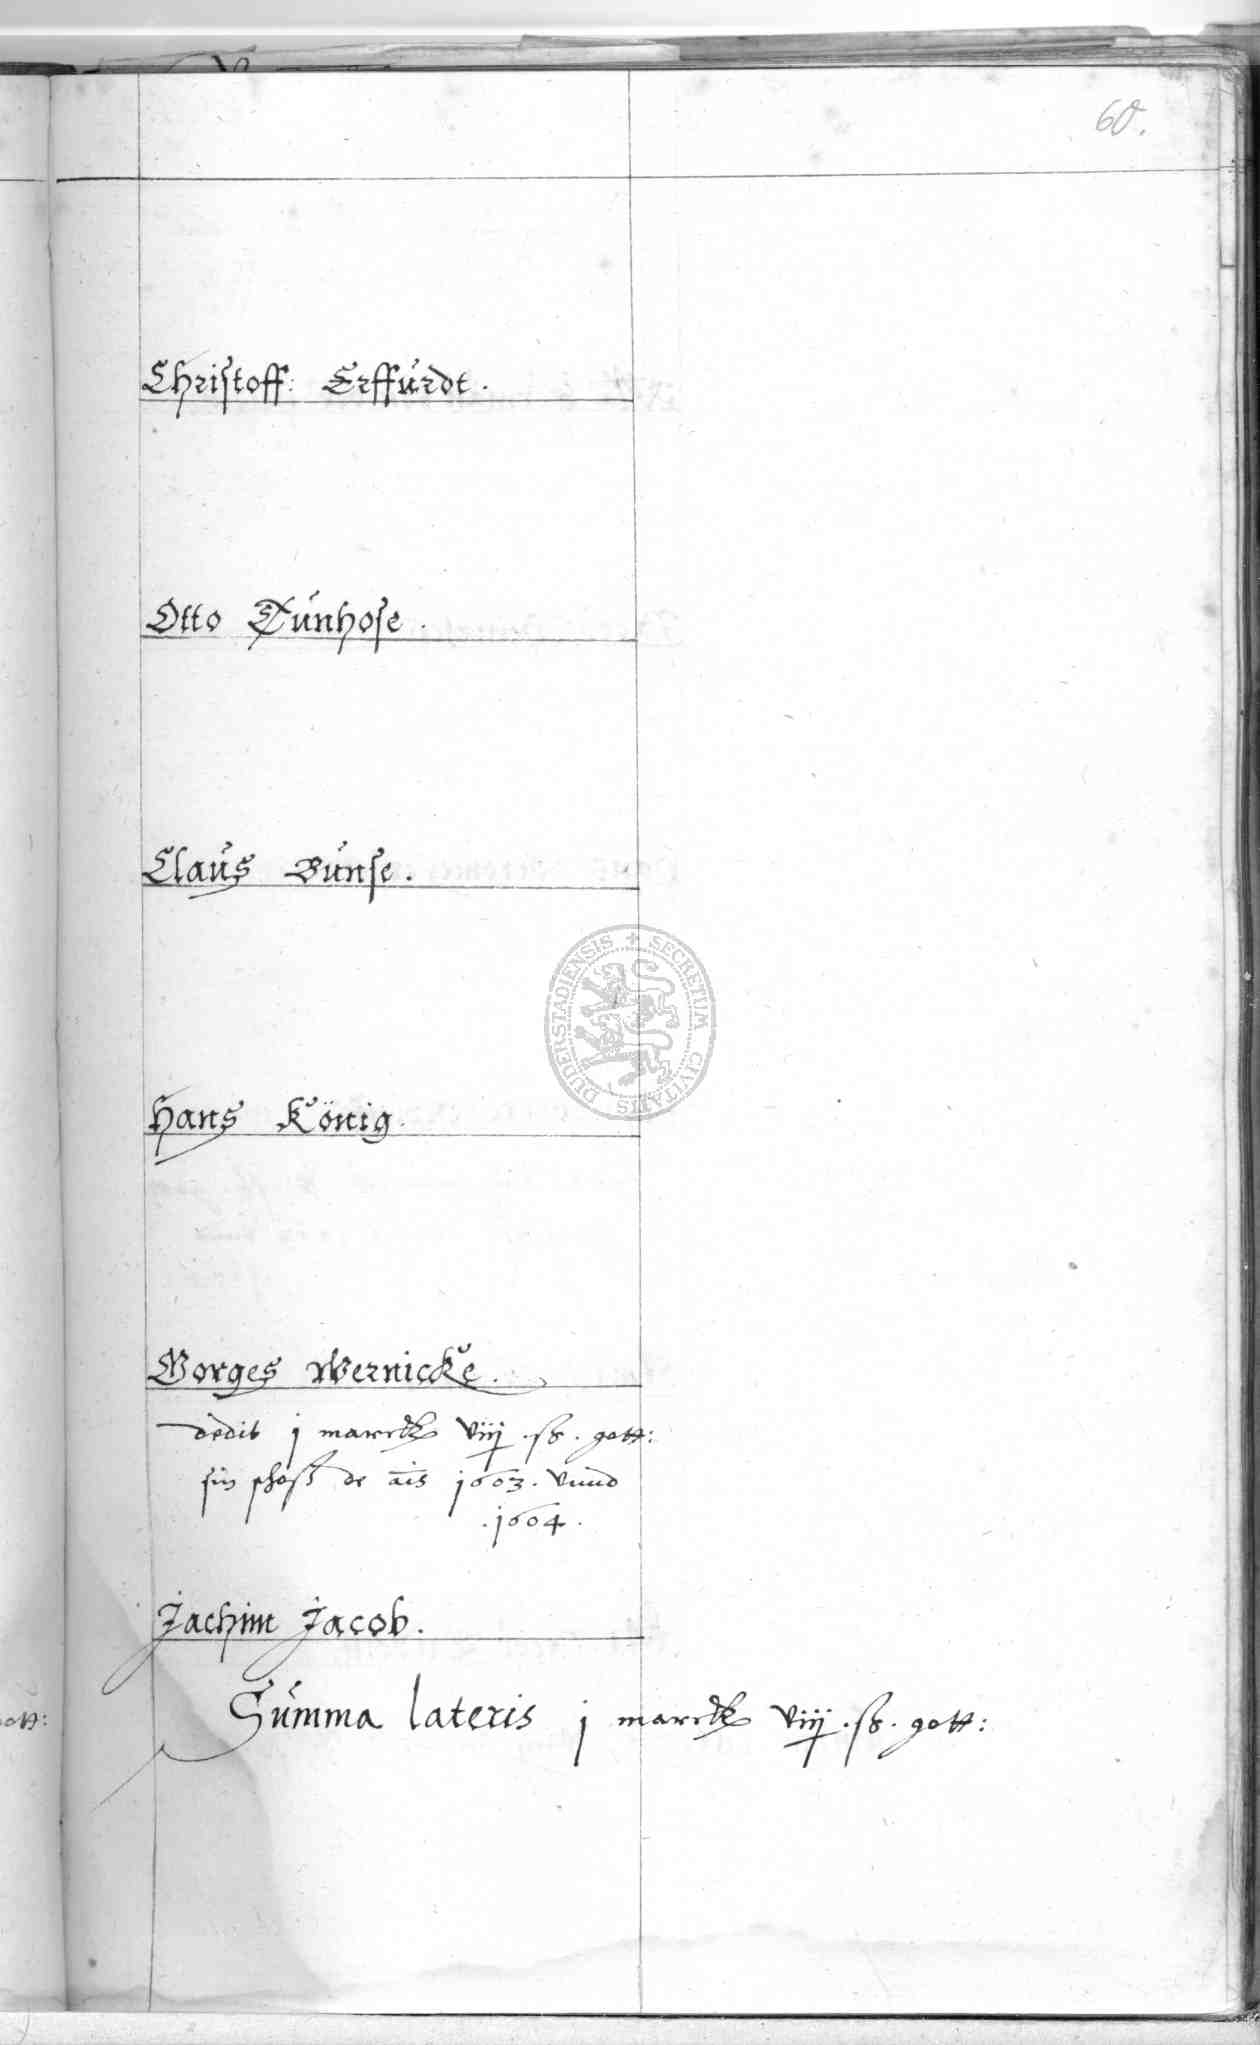 60.
Christoff: Erffurdt.
Otto Dünhose.
Claus Bunse.
DUDERSTADIENSIS + SECRETUM CIVITATIS
Hans König.
Borges Wernicke.
dedit j marck viij .ß. gott:
sin schoß de ais 1603. vnnd
.1604.
Jachim Jacob.
Summa lateris j marck viij .ß. gott:
ott: